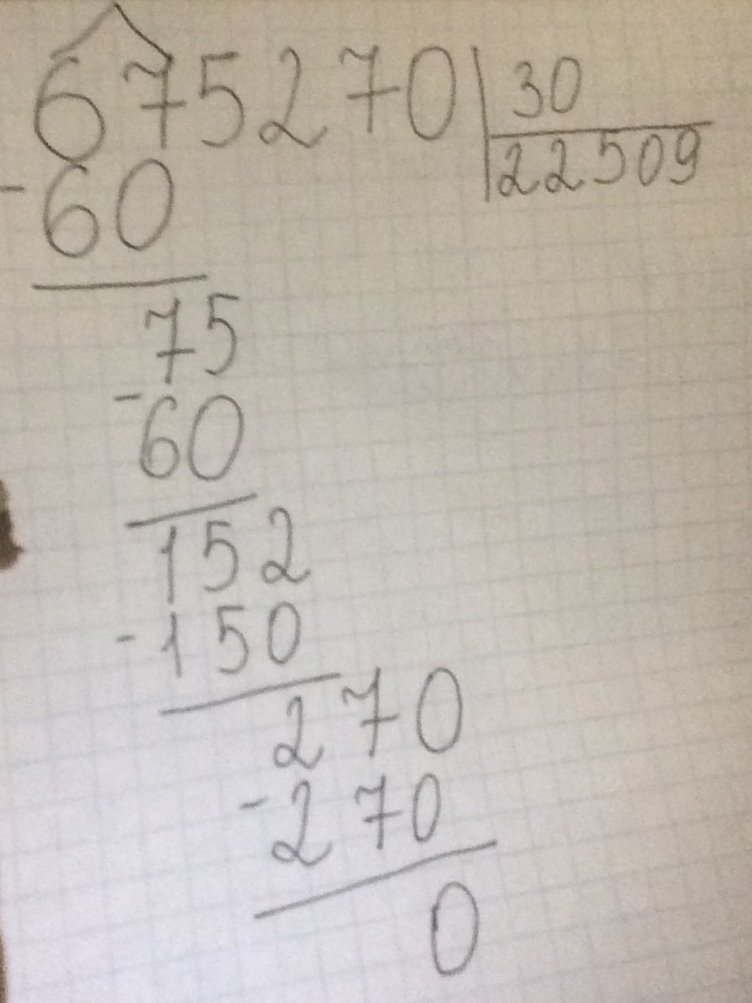 675270 30
22509
-60
75
-60
152
-150
270
-270
0